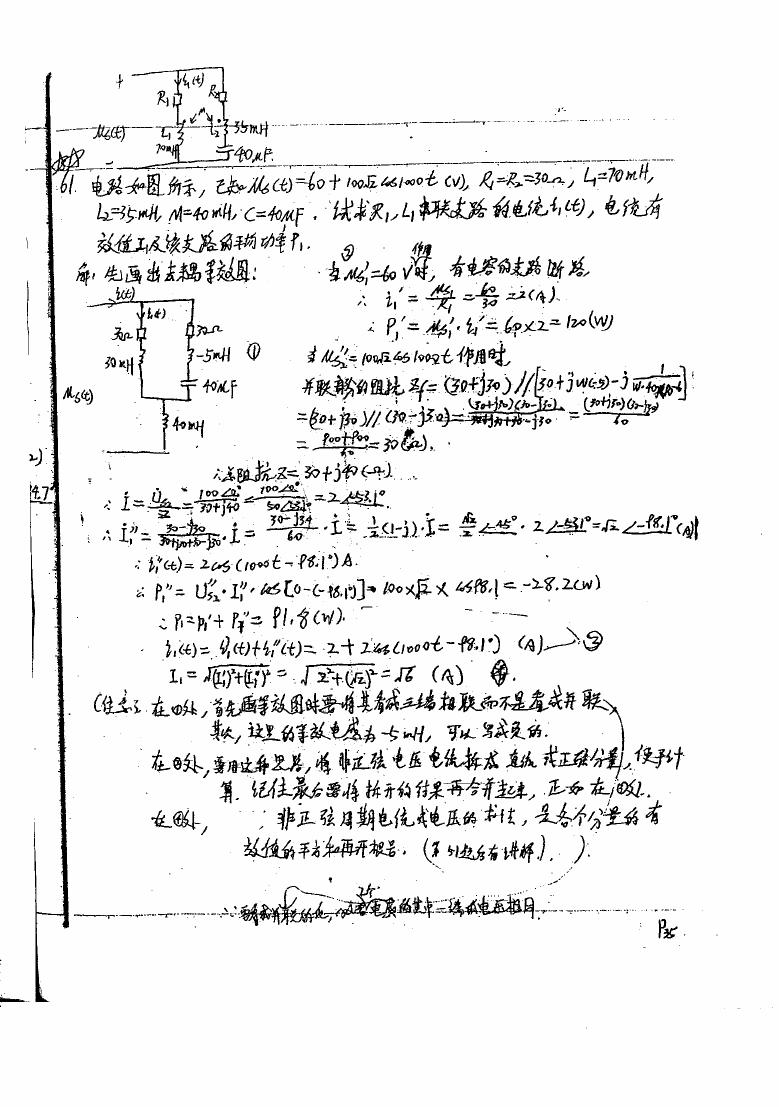 + i₁(t)
R₁ R₂
M
Us(t) L₁ L₂ 35mH
70mH
- 40μF
61. 电路如图所示，已知 Us(t)=60+100√2cos1000t (V), R₁=R₂=30Ω, L₁=70mH,
L₂=35mH, M=40mH, C=40μF. 试求R₁, L₁串联支路的电流i₁(t), 电流有
效值I₁及该支路的平均功率P₁.
解: 先画出去耦等效图:
i(t)
i₁(t)
30Ω 30Ω
30mH -5mH ①
40μF
Us(t)
40mH
② 当Us₁'=60V作用时, 有电容的支路断路.
∴ i₁' = Us₁/R₁ = 60/30 = 2(A)
∴ P₁' = Us₁'·i₁' = 60×2 = 120(W)
当Us₂''=100√2cos1000t作用时,
并联部分的阻抗Zf = (30+j30)//[30+jw(-5)-j
=(30+j30)//(30-j30)=(30+j30)(30-j30)/30+j30+30-j30 = (30+j30)(30-j30)/60
= 900+900/60 = 30(Ω).
∴总阻抗Z=30+j40(Ω)
∴ İ = U̇s₂/Z = 100∠0°/30+j40 = 100∠0°/50∠53.1° = 2∠-53.1°
∴ İ₁'' = 30-j30/30+j30+30-j30·İ = 30-j30/60·İ = ½(1-j)·İ = √2/2∠-45°·2∠-53.1° = √2∠-98.1°(A)
∴ i₁''(t) = 2cos(1000t-98.1°)A.
∴ P₁'' = Us₂''·I₁''·cos[0-(-98.1°)] = 100×√2×cos98.1 = -28.2(W)
∴ P₁=P₁'+P₁''= 91.8(W).
i₁(t) = i₁'(t)+i₁''(t) = 2+2cos(1000t-98.1°) (A) ③
I₁ = √(I₁')²+(I₁'')² = √2²+(√2)² = √6 (A) ④.
(注意: 在①处, 首先画等效图时要将其看成三端相联而不是看成并联
其次, 这里的等效电感为-5mH, 可以写成负的.
在②处, 要用这种思路, 将非正弦电压电流拆成直流或正弦分量, 便于计
算. 记住最后要将拆开的结果再合并起来, 正如在③处.
在④处, 非正弦周期电流或电压的求法, 是各个分量的有
效值的平方和再开根号. (第51题后有讲解). ).
P35